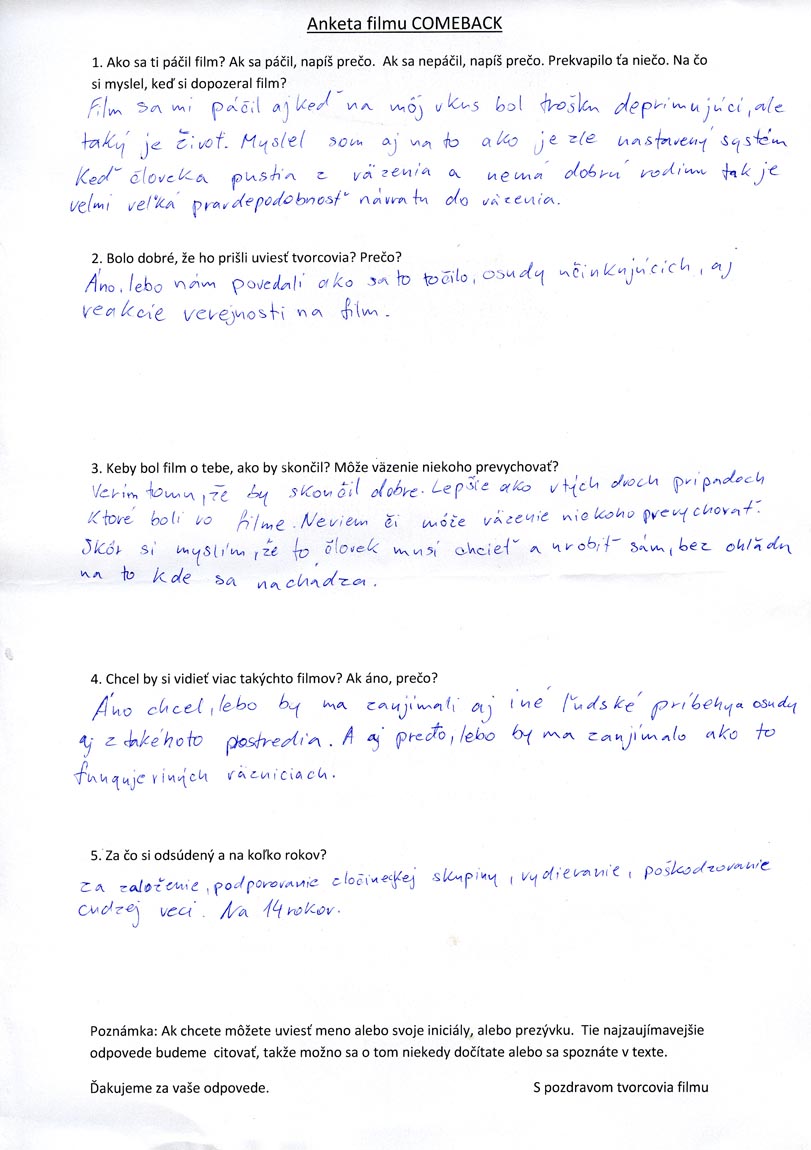 Anketa filmu COMEBACK
1. Ako sa ti páčil film? Ak sa páčil, napíš prečo.  Ak sa nepáčil, napíš prečo. Prekvapilo ťa niečo. Na čo
si myslel, keď si dopozeral film?
Film sa mi páčil aj keď na môj vkus bol trošku deprimujúci, ale
taký je život. Myslel som aj na to ako je zle nastavený systém
Keď človeka pustia z väzenia a nemá dobrú rodinu tak je
velmi veľká pravdepodobnosť návratu do väzenia.
2. Bolo dobré, že ho prišli uviesť tvorcovia? Prečo?
Áno, lebo nám povedali ako sa to točilo, osudy učinkujúcich, aj
reakcie verejnosti na film.
3. Keby bol film o tebe, ako by skončil? Môže väzenie niekoho prevychovať?
Verim tomu, že by skončil dobre. Lepšie ako v tých dvoch pripadoch
Ktoré boli vo filme. Neviem či môže väzenie niekoho prevychovať.
Skôr si myslím, že to človek musí chcieť a urobiť sám, bez ohladu
na to kde sa nachádza.
4. Chcel by si vidieť viac takýchto filmov? Ak áno, prečo?
Áno chcel, lebo by ma zaujímali aj iné ľudské príbehy a osudy
aj z takéhoto postredia. A aj preto, lebo by ma zaujímalo ako to
funguje v iných väzniciach.
5. Za čo si odsúdený a na koľko rokov?
za založenie, podporovanie zločineckej skupiny, vydieranie, poškodzovanie
cudzej veci. Na 14 rokov.
Poznámka: Ak chcete môžete uviesť meno alebo svoje iniciály, alebo prezývku.  Tie najzaujímavejšie
odpovede budeme  citovať, takže možno sa o tom niekedy dočítate alebo sa spoznáte v texte.
Ďakujeme za vaše odpovede. S pozdravom tvorcovia filmu